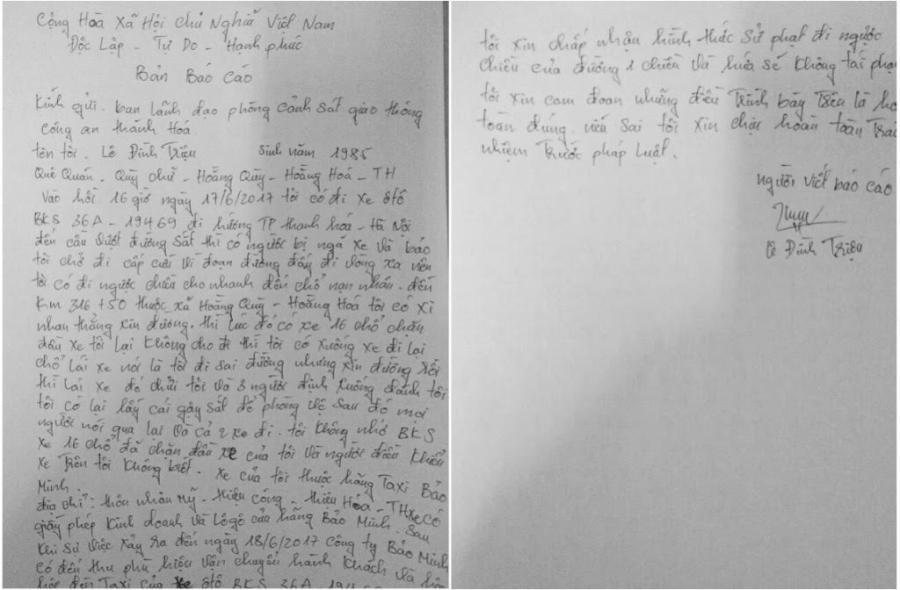 Cộng Hoà Xã Hội Chủ Nghĩa Việt Nam
Độc Lập - Tự Do - Hạnh phúc
Bản Báo Cáo
Kính gửi. ban lãnh đạo phòng cảnh sát giao thông
công an thanh Hoá
tên tôi. Lê Đình Triệu sinh năm 1985
Quê Quán. Quỳ chữ - Hoằng Quỳ - Hoằng Hoá - TH
Vào hồi 16 giờ ngày 17/6/2017 tôi có đi xe ôtô
BKS 36A - 19469 đi hướng TP thanh hóa - Hà Nội
đến cầu vượt đường sắt thì có người bị ngã xe và bảo
tôi chở đi cấp cứu vì đoạn đường đấy đi vòng xa nên
tôi có đi ngược chiều cho nhanh để chở nạn nhân. đến
Km 316 +50 thuộc xã Hoằng Quỳ - Hoằng Hoá tôi có xi
nhan thẳng xin đường. thì lúc đó có xe 16 chỗ chặn
đầu xe tôi lại không cho đi thì tôi có xuống xe đi lại
chỗ lái xe nói là tôi đi sai đường nhưng xin đường rồi
thì lái xe đó chửi tôi và 3 người định xuống đánh tôi
tôi có lại lấy cái gậy sắt để phòng vệ sau đó mọi
người nói qua lại và cả 2 xe đi. tôi không nhớ BKS
xe 16 chỗ đã chặn đầu xe của tôi và người điều khiển
xe trên tôi không biết. xe của tôi thuộc hãng Taxi Bảo
Minh.
địa chỉ: thôn nhân Mỹ - thiệu công - thiệu Hóa - TH xe có
giấy phép kinh doanh và Lôgô của hãng Bảo Minh. Sau
khi sự việc xảy ra đến ngày 18/6/2017 công ty Bảo Minh
có đến thu phù hiệu vận chuyển hành khách và
đèn Taxi của xe ôtô BKS 36A
tôi xin chấp nhận hình thức xử phạt đi ngược
chiều của đường 1 chiều và hứa sẽ không tái phạm
tôi xin cam đoan những điều trình bày trên là ho
toàn đúng. nếu sai tôi xin chịu hoàn toàn trác
nhiệm trước pháp luật.
người viết báo cáo
Lê Đình Triệu